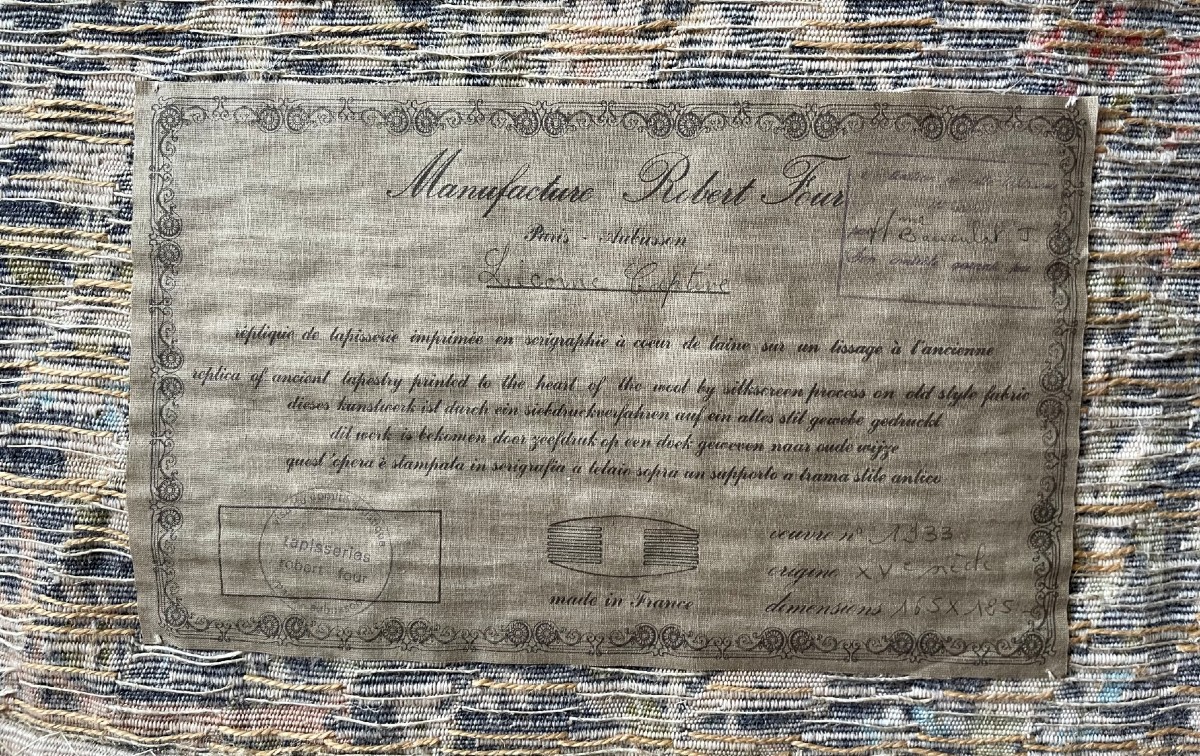 Manufacture Robert Four
Paris - Aubusson
Licorne Captive
réplique de tapisserie imprimée en serigraphie à coeur de laine sur un tissage à l'ancienne
replica of ancient tapestry printed to the heart of the wool by silkscreen process on old style fabric
dieses kunstwerk ist durch ein siebdruckverfahren auf ein altes stil gewebe gedruckt
dit werk is bekomen door zeefdruk op een doek geweven naar oude wijze
quest'opera è stampata in serigrafia a telaio sopra un supporto a trama stile antico
tapisseries
robert four
made in France
oeuvre n° 1933
origine XVe siècle
dimensions 165 X 185